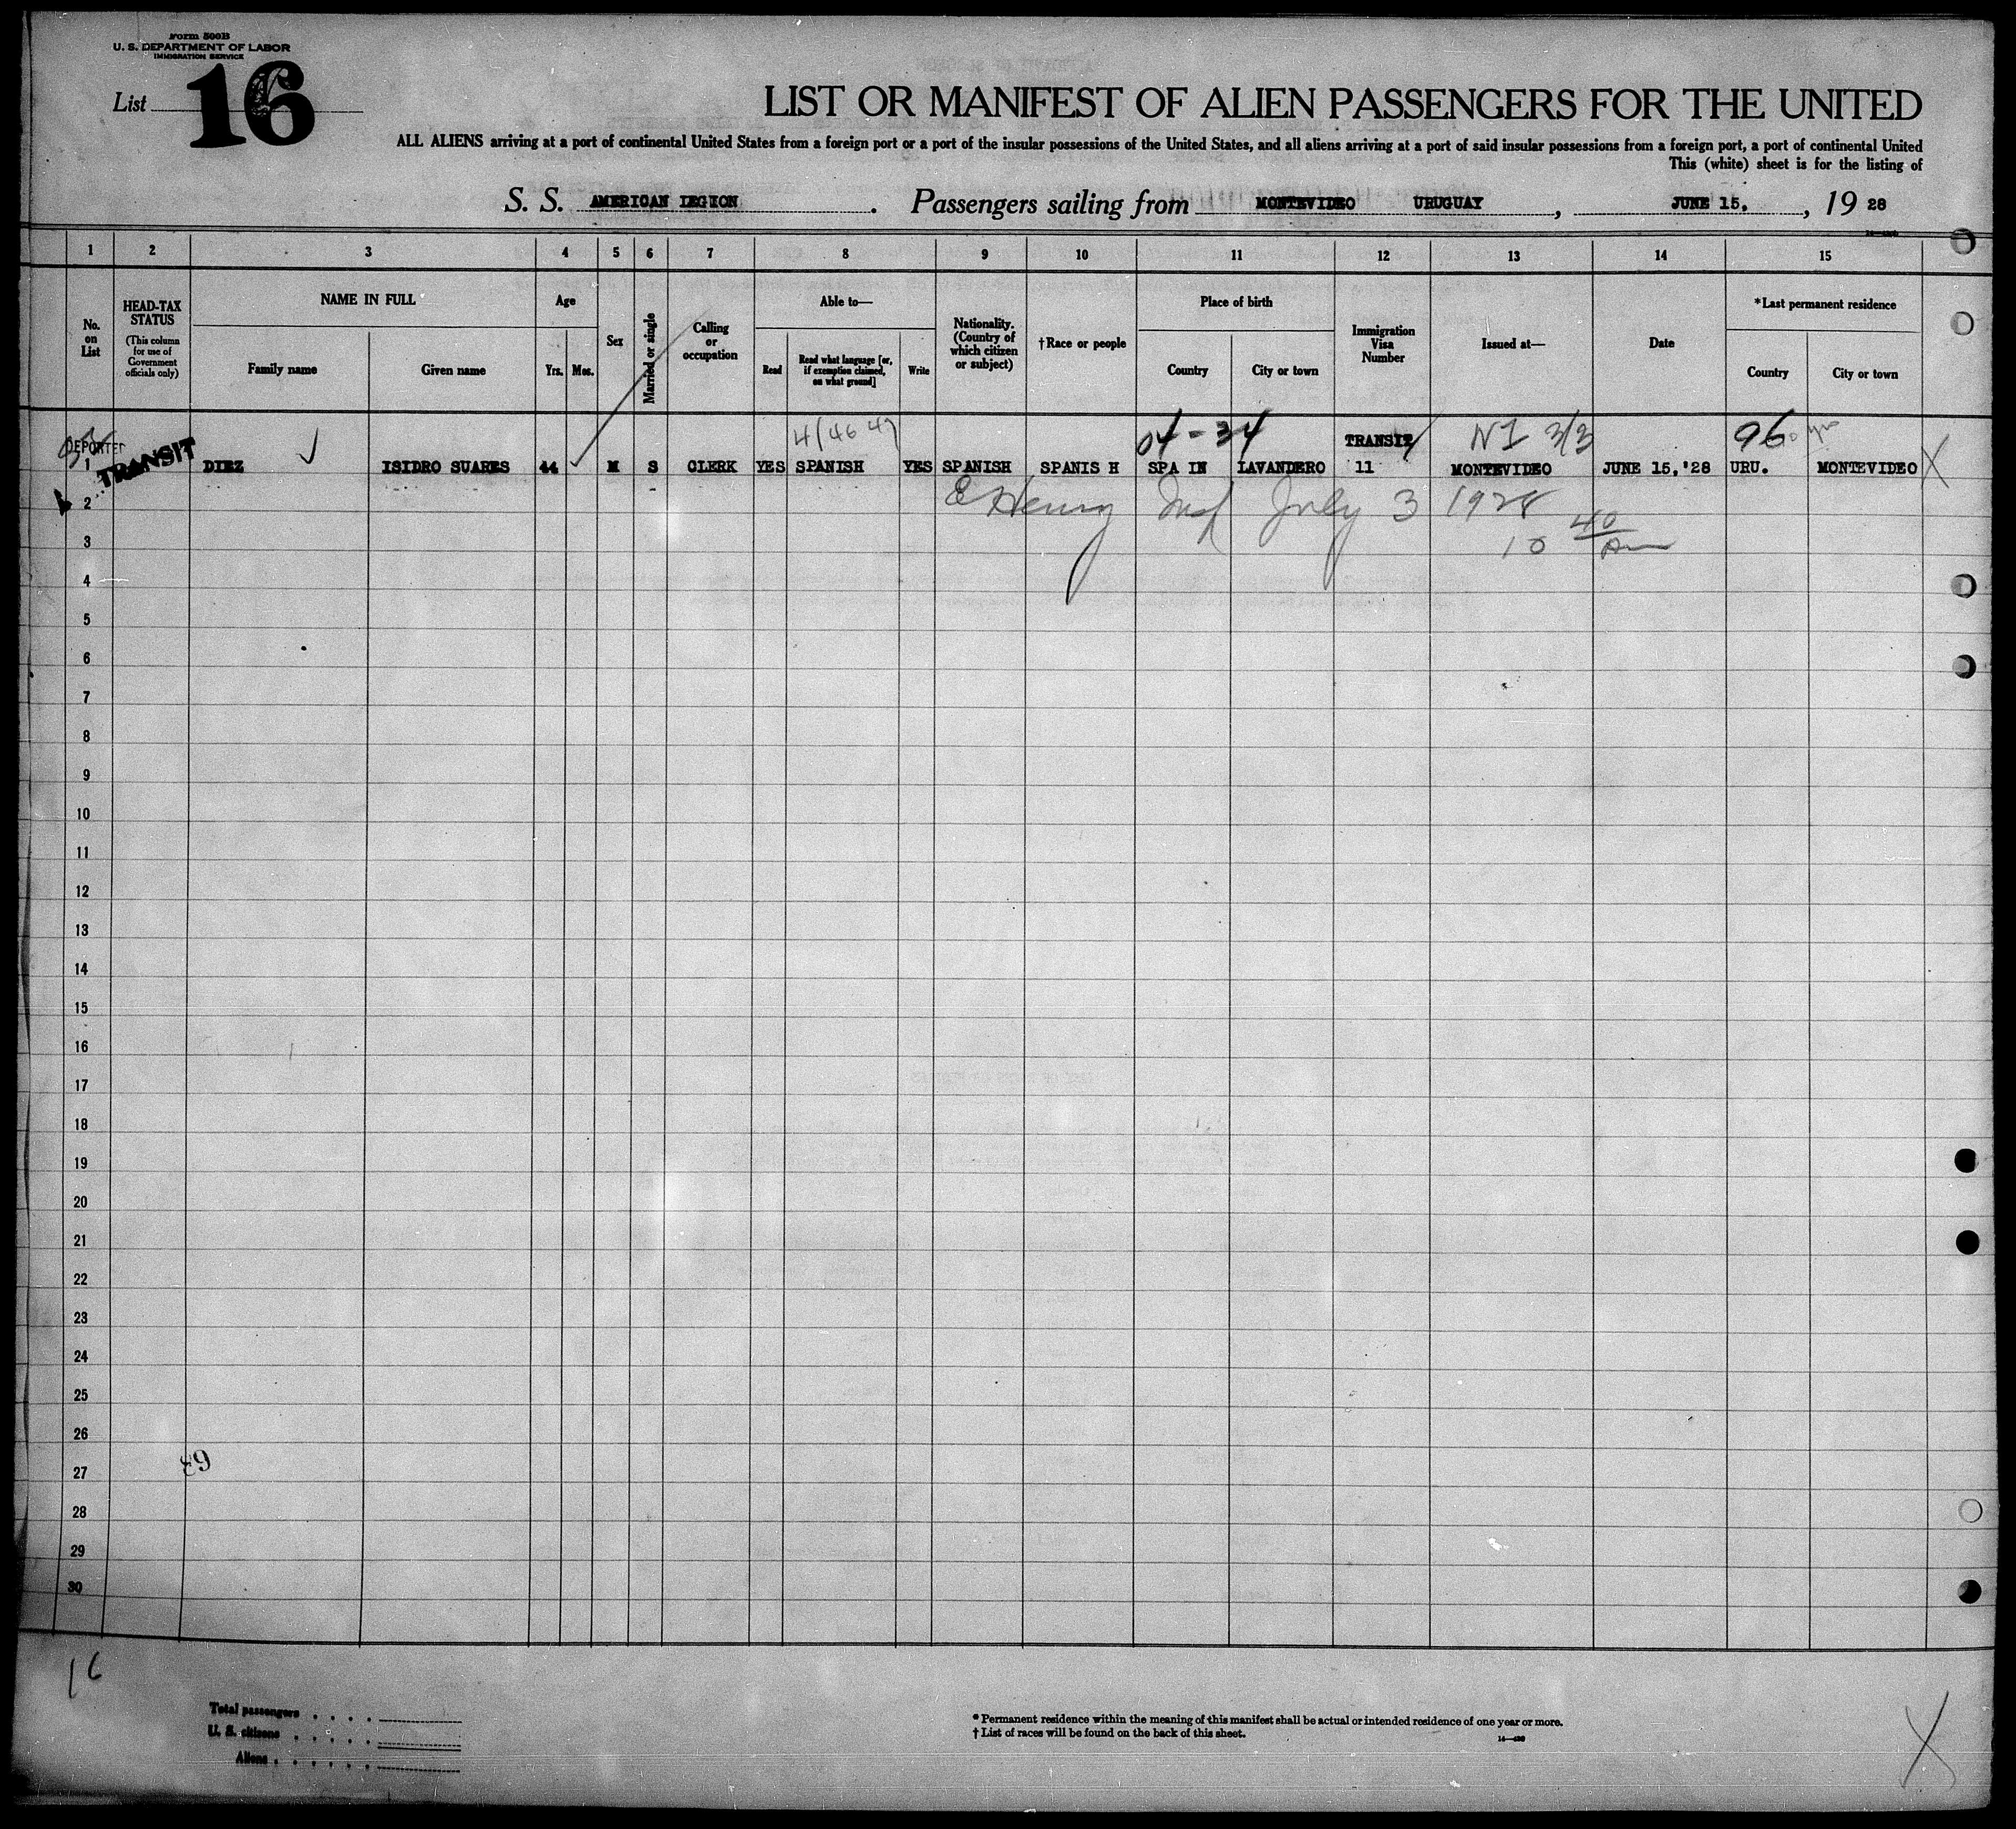 Form 500B
U. S. DEPARTMENT OF LABOR
IMMIGRATION SERVICE
List 16
LIST OR MANIFEST OF ALIEN PASSENGERS FOR THE UNITED
ALL ALIENS arriving at a port of continental United States from a foreign port or a port of the insular possessions of the United States, and all aliens arriving at a port of said insular possessions from a foreign port, a port of continental United
This (white) sheet is for the listing of
S. S. AMERICAN LEGION. Passengers sailing from MONTEVIDEO URUGUAY, JUNE 15, , 19 28
1 2 3 4 5 6 7 8 9 10 11 12 13 14 15
No. on List
HEAD-TAX STATUS
(This column for use of Government officials only)
NAME IN FULL
Family name
Given name
Age
Yrs. Mos.
Sex
Married or single
Calling or occupation
Able to—
Read
Read what language [or, if exemption claimed, on what ground]
Write
Nationality. (Country of which citizen or subject)
†Race or people
Place of birth
Country
City or town
Immigration Visa Number
Issued at—
Date
*Last permanent residence
Country
City or town
DEPORTED
4/46 47 04-34 TRANSIT NI 3/3 960
1 TRANSIT DIEZ ISIDRO SUARES 44 M S CLERK YES SPANISH YES SPANISH SPANIS H SPA IN LAVANDERO 11 MONTEVIDEO JUNE 15, '28 URU. MONTEVIDEO X
2 E Henry Insp July 3 1928
3 10 40 Am
4
5
6
7
8
9
10
11
12
13
14
15
16
17
18
19
20
21
22
23
24
25
26
27
28
29
30
63
16
Total passengers . . . .
U. S. citizens . . . . .
Aliens . . . . . .
* Permanent residence within the meaning of this manifest shall be actual or intended residence of one year or more.
† List of races will be found on the back of this sheet.
X